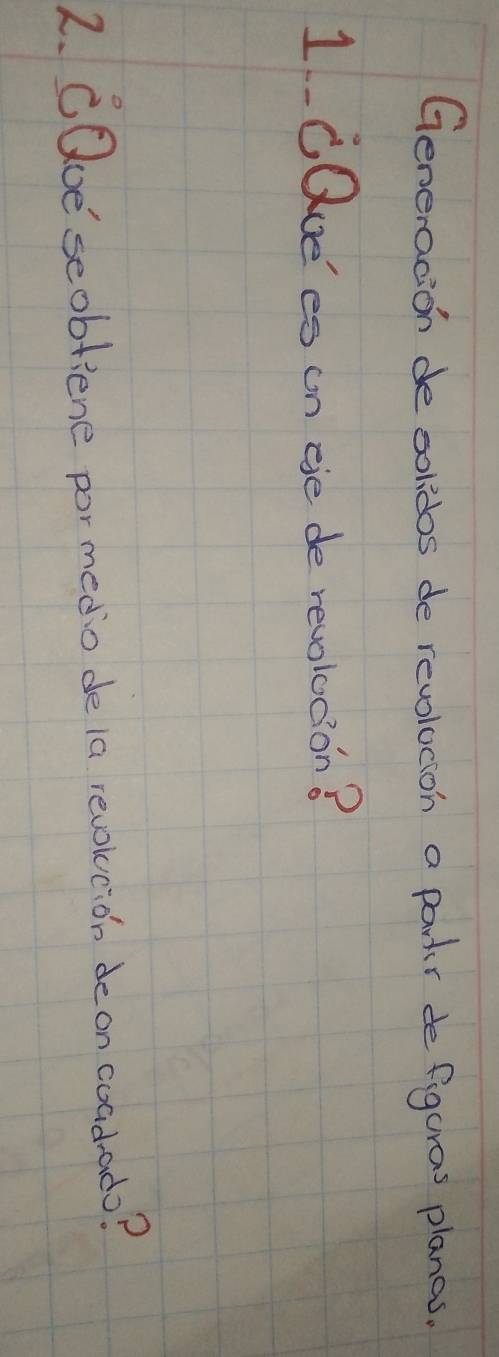 Generación de solidos de revolución a partir de figuras planas.
1.- ¿Qué es un eje de revolución?
2. ¿Qué se obtiene por medio de la revolución de un cuadrado?